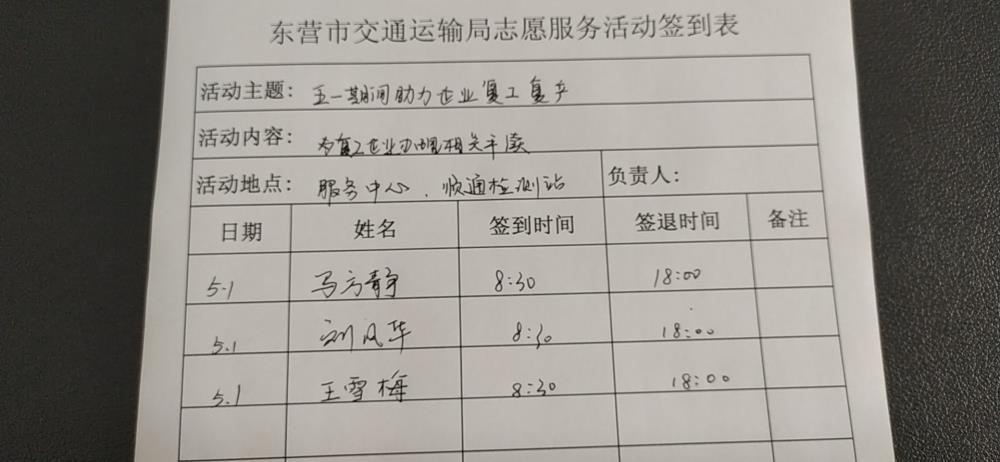 东营市交通运输局志愿服务活动签到表
活动主题: 五一期间助力企业复工复产
活动内容: 为复工企业办理相关手续
活动地点: 服务中心、顺通检测站 负责人:
日期 姓名 签到时间 签退时间 备注
5.1 马方静 8:30 18:00
5.1 刘风华 8:30 18:00
5.1 王雪梅 8:30 18:00